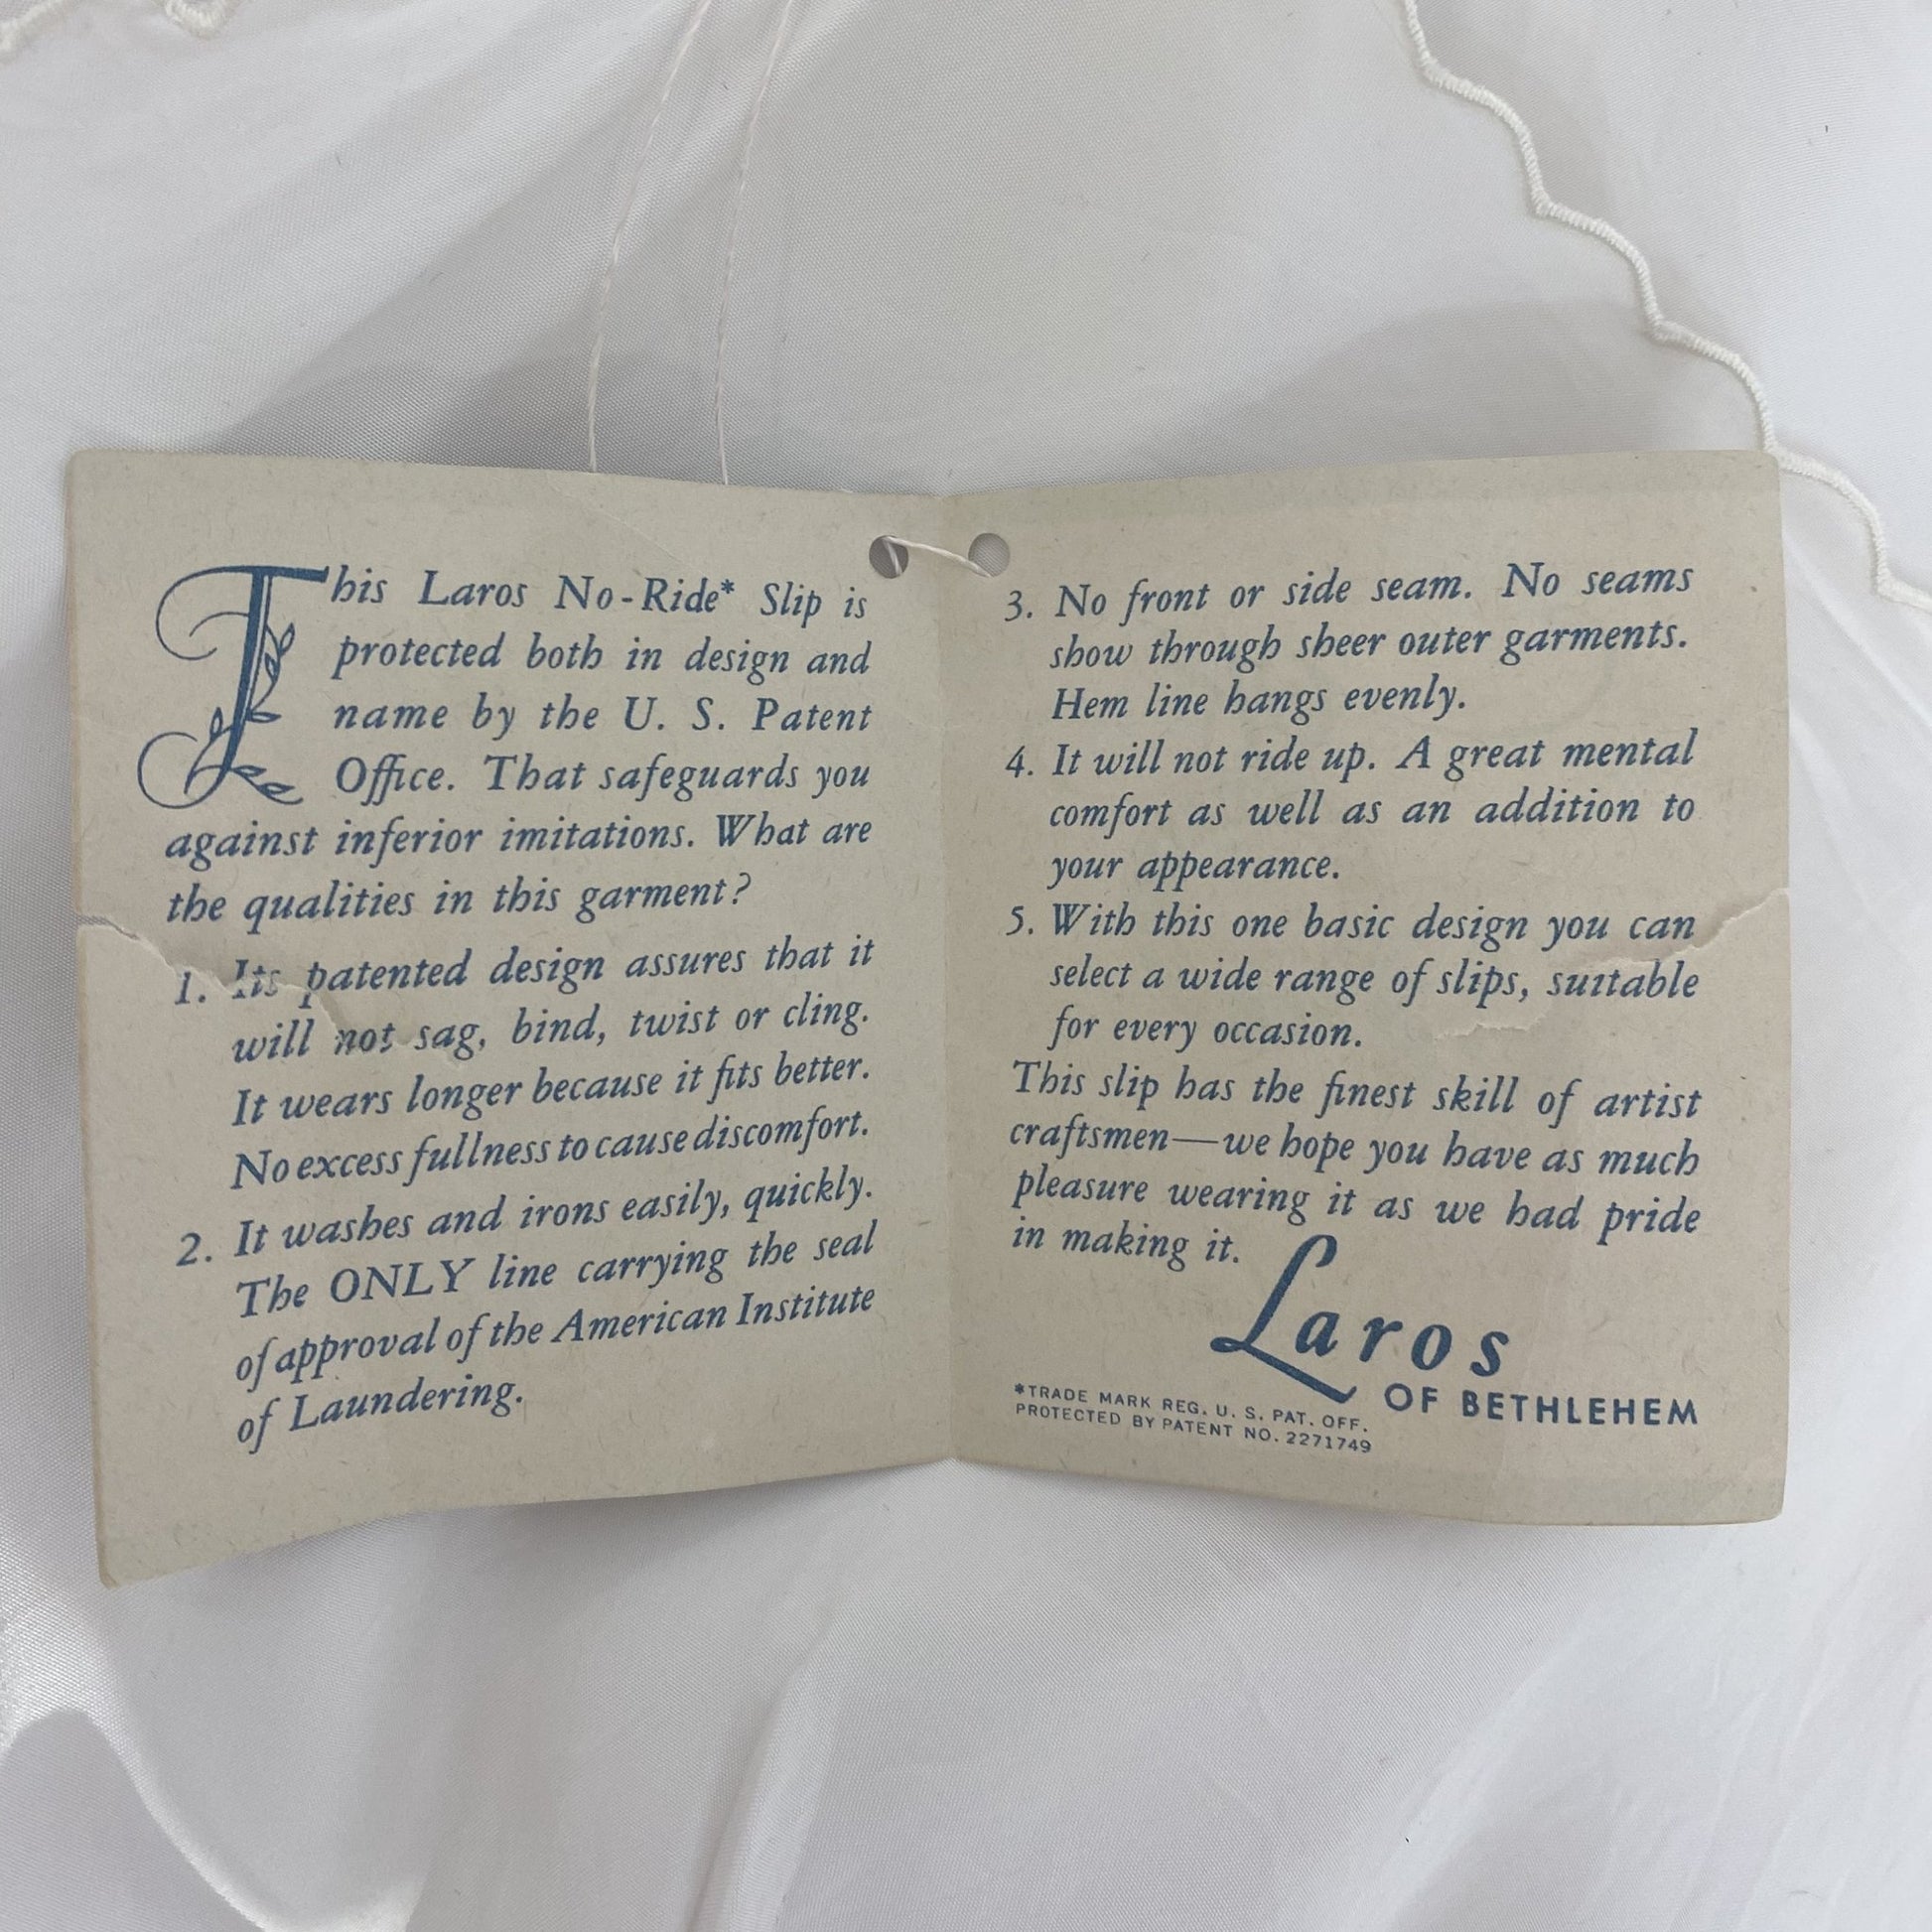 This Laros No-Ride* Slip is
protected both in design and
name by the U. S. Patent
Office. That safeguards you
against inferior imitations. What are
the qualities in this garment?
1. Its patented design assures that it
will not sag, bind, twist or cling.
It wears longer because it fits better.
No excess fullness to cause discomfort.
2. It washes and irons easily, quickly.
The ONLY line carrying the seal
of approval of the American Institute
of Laundering.
3. No front or side seam. No seams
show through sheer outer garments.
Hem line hangs evenly.
4. It will not ride up. A great mental
comfort as well as an addition to
your appearance.
5. With this one basic design you can
select a wide range of slips, suitable
for every occasion.
This slip has the finest skill of artist
craftsmen—we hope you have as much
pleasure wearing it as we had pride
in making it.
Laros
OF BETHLEHEM
*TRADE MARK REG. U. S. PAT. OFF.
PROTECTED BY PATENT NO. 2271749